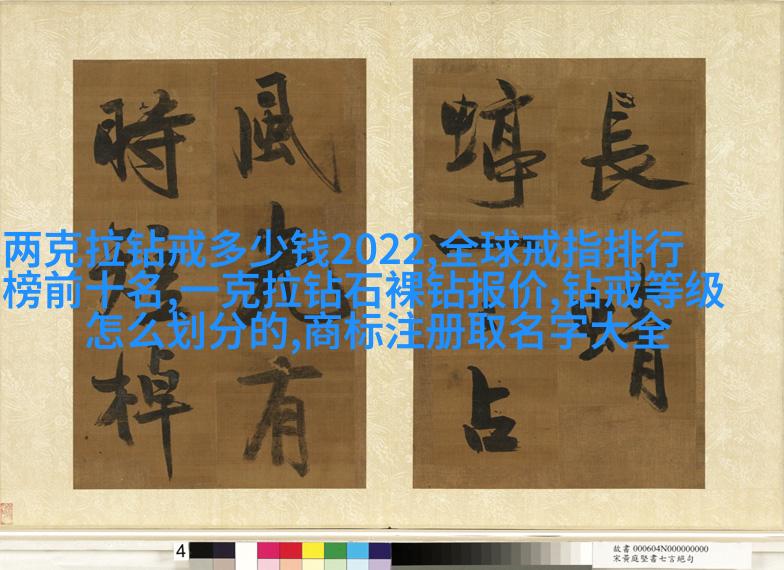 两克拉钻戒多少钱2022,全球戒指排行
榜前十名,一克拉钻石裸钻报价,钻戒等级
怎么划分的,商标注册取名字大全
長蜻
蜓占
風光有
時棹
4
故書 000604N000000000
宋黃庭堅書七言絕句